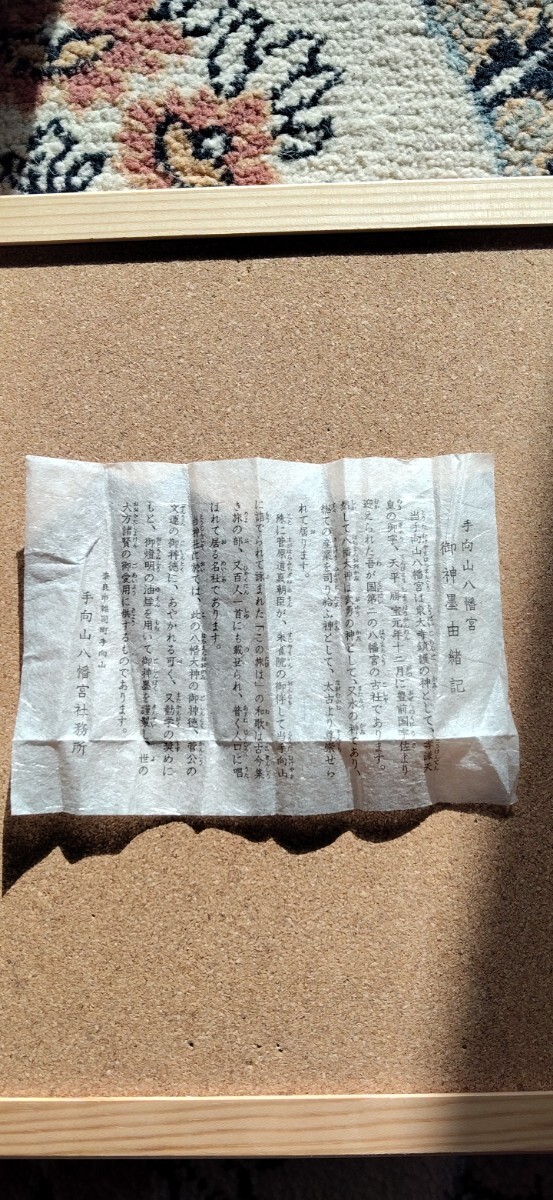 手向山八幡宮
御神墨由緒記
当手向山八幡宮は東大寺鎮護の神として、孝謙天
皇の御宇、天平勝宝元年十二月に豊前国宇佐より
迎えられた吾が国第二の八幡宮の古社であります。
して八幡大神は武勇の神として、又水の神であり、
ての産業を司り給ふ神として、太古より尊崇せら
れて居ります。
殊に菅原道真朝臣が、朱雀院の御伴して当手向山
に詣でられて詠まれた「この旅は」の和歌は古今集
き旅の部、又百人一首にも載せられ、普く人口に唱
はれて居る名社であります。
当神社に於ては、此の八幡大神の御神徳、菅公の
文運の御神徳に、あやかれる可く、又勤学の奨めに
もと、御燈明の油煙を用いて御神墨を謹製し、世の
大方諸賢の御愛用に供するものであります。
奈良市雑司町手向山
手向山八幡宮社務所